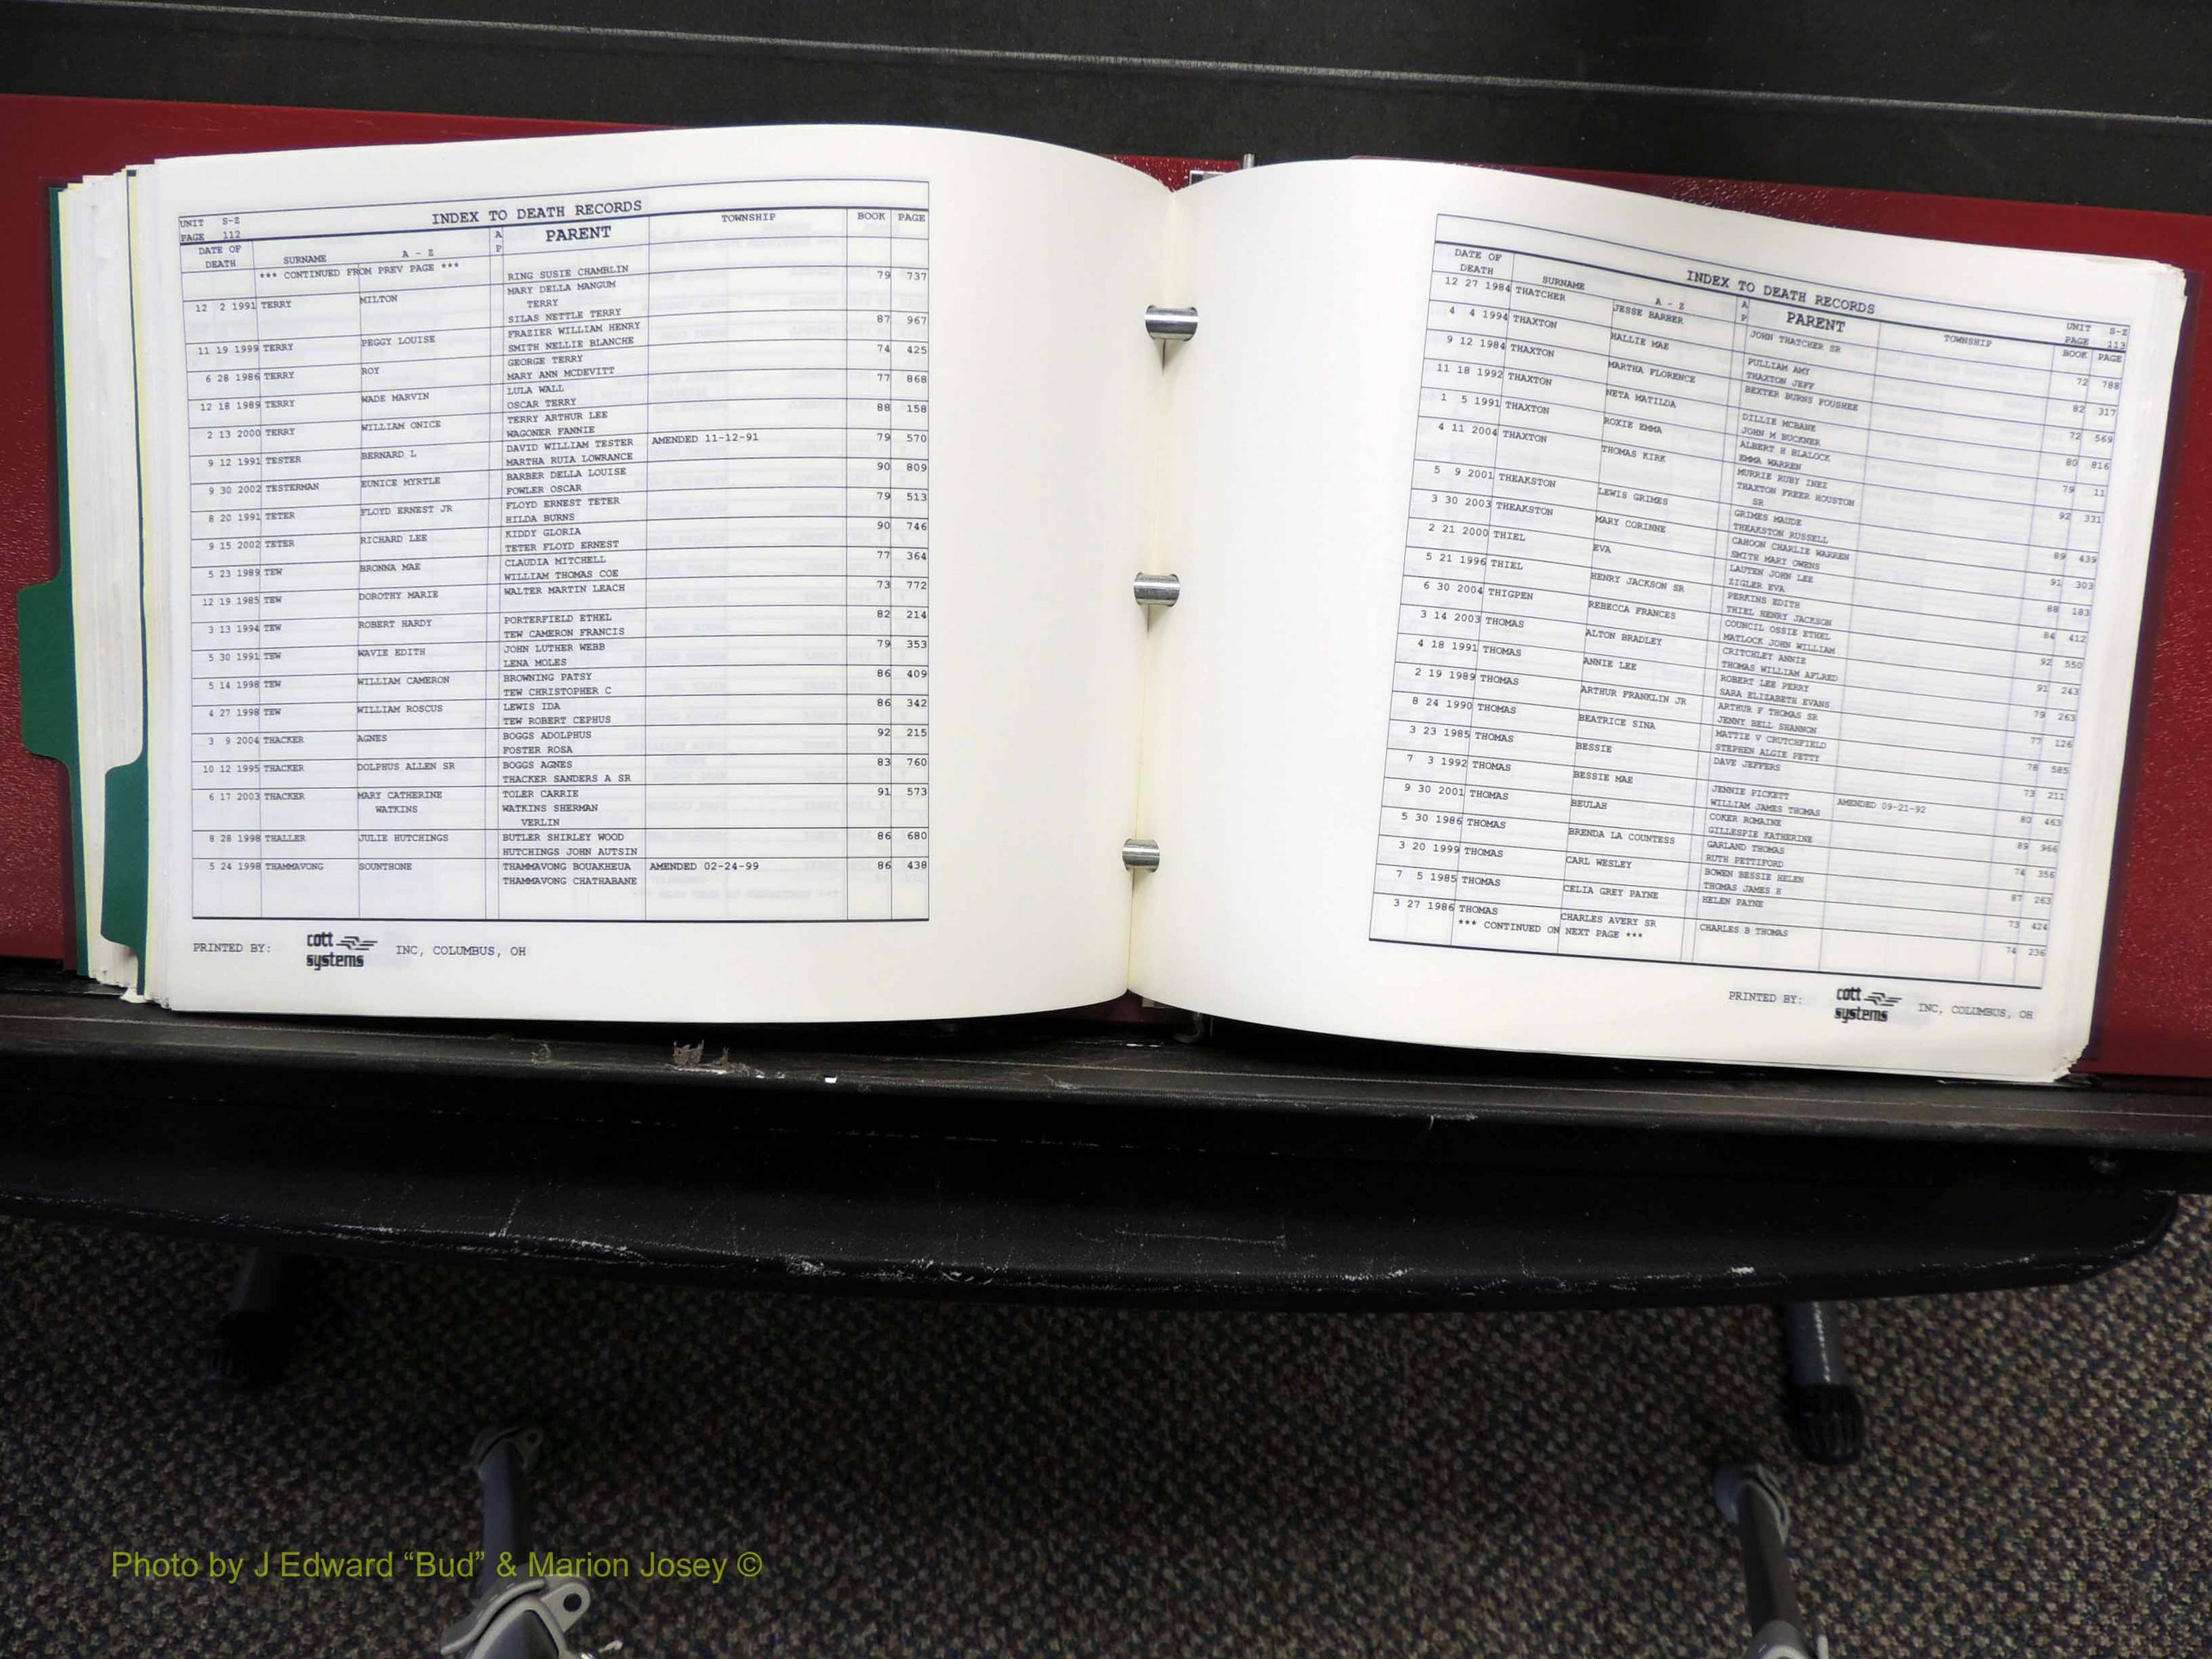 UNIT S-Z
PAGE 112
INDEX TO DEATH RECORDS
DATE OF DEATH SURNAME A - Z A P PARENT TOWNSHIP BOOK PAGE
*** CONTINUED FROM PREV PAGE *** RING SUSIE CHAMBLIN
12 2 1991 TERRY MILTON MARY DELLA MANGUM 79 737
TERRY
SILAS NETTLE TERRY
11 19 1999 TERRY PEGGY LOUISE FRAZIER WILLIAM HENRY 87 967
SMITH NELLIE BLANCHE
6 28 1986 TERRY ROY GEORGE TERRY 74 425
MARY ANN MCDEVITT
12 18 1989 TERRY WADE MARVIN LULA WALL 77 868
OSCAR TERRY
2 13 2000 TERRY WILLIAM ONICE TERRY ARTHUR LEE 88 158
WAGONER FANNIE
9 12 1991 TESTER BERNARD L DAVID WILLIAM TESTER AMENDED 11-12-91 79 570
MARTHA RUIA LOWRANCE
9 30 2002 TESTERMAN EUNICE MYRTLE BARBER DELLA LOUISE 90 809
FOWLER OSCAR
8 20 1991 TETER FLOYD ERNEST JR FLOYD ERNEST TETER 79 513
HILDA BURNS
9 15 2002 TETER RICHARD LEE KIDDY GLORIA 90 746
TETER FLOYD ERNEST
5 23 1989 TEW BRONNA MAE CLAUDIA MITCHELL 77 364
WILLIAM THOMAS COE
12 19 1985 TEW DOROTHY MARIE WALTER MARTIN LEACH 73 772
3 13 1994 TEW ROBERT HARDY PORTERFIELD ETHEL 82 214
TEW CAMERON FRANCIS
5 30 1991 TEW WAVIE EDITH JOHN LUTHER WEBB 79 353
LENA MOLES
5 14 1998 TEW WILLIAM CAMERON BROWNING PATSY 86 409
TEW CHRISTOPHER C
4 27 1998 TEW WILLIAM ROSCUS LEWIS IDA 86 342
TEW ROBERT CEPHUS
3 9 2004 THACKER AGNES BOGGS ADOLPHUS 92 215
FOSTER ROSA
10 12 1995 THACKER DOLPHUS ALLEN SR BOGGS AGNES 83 760
THACKER SANDERS A SR
6 17 2003 THACKER MARY CATHERINE TOLER CARRIE 91 573
WATKINS WATKINS SHERMAN
VERLIN
8 28 1998 THALLER JULIE HUTCHINGS BUTLER SHIRLEY WOOD 86 680
HUTCHINGS JOHN AUTSIN
5 24 1998 THAMMAVONG SOUNTHONE THAMMAVONG BOUAKHEUA AMENDED 02-24-99 86 438
THAMMAVONG CHATHABANE
PRINTED BY: cott systems INC, COLUMBUS, OH
INDEX TO DEATH RECORDS
UNIT S-Z
PAGE 113
DATE OF DEATH SURNAME A - Z A P PARENT TOWNSHIP BOOK PAGE
12 27 1984 THATCHER JESSE BARBER JOHN THATCHER SR 72 788
4 4 1994 THAXTON HALLIE MAE PULLIAM AMY 82 317
THAXTON JEFF
9 12 1984 THAXTON MARTHA FLORENCE BEXTER BURNS FOUSHEE 72 569
11 18 1992 THAXTON NETA MATILDA DILLIE MCBANE 80 816
JOHN M BUCKNER
1 5 1991 THAXTON ROXIE EMMA ALBERT H BLALOCK 79 11
EMMA WARREN
4 11 2004 THAXTON THOMAS KIRK MURRIE RUBY INEZ 92 331
THAXTON FREER HOUSTON
SR
5 9 2001 THEAKSTON LEWIS GRIMES GRIMES MAUDE 89 439
THEAKSTON RUSSELL
3 30 2003 THEAKSTON MARY CORINNE CAHOON CHARLIE WARREN 91 303
SMITH MARY OWENS
2 21 2000 THIEL EVA LAUTEN JOHN LEE 88 183
ZIGLER EVA
5 21 1996 THIEL HENRY JACKSON SR PERKINS EDITH 84 412
THIEL HENRY JACKSON
6 30 2004 THIGPEN REBECCA FRANCES COUNCIL OSSIE ETHEL 92 550
MATLOCK JOHN WILLIAM
3 14 2003 THOMAS ALTON BRADLEY CRITCHLEY ANNIE 91 243
THOMAS WILLIAM AFLRED
4 18 1991 THOMAS ANNIE LEE ROBERT LEE PERRY 79 263
SARA ELIZABETH EVANS
2 19 1989 THOMAS ARTHUR FRANKLIN JR ARTHUR F THOMAS SR 77 126
JENNY BELL SHANNON
8 24 1990 THOMAS BEATRICE SINA MATTIE V CRUTCHFIELD 78 585
STEPHEN ALGIE PETTY
3 23 1985 THOMAS BESSIE DAVE JEFFERS 73 211
7 3 1992 THOMAS BESSIE MAE JENNIE PICKETT AMENDED 09-21-92 80 463
WILLIAM JAMES THOMAS
9 30 2001 THOMAS BEULAH COKER ROMAINE 89 966
GILLESPIE KATHERINE
5 30 1986 THOMAS BRENDA LA COUNTESS GARLAND THOMAS 74 356
RUTH PETTIFORD
3 20 1999 THOMAS CARL WESLEY BOWEN BESSIE HELEN 87 263
THOMAS JAMES H
7 5 1985 THOMAS CELIA GREY PAYNE HELEN PAYNE 73 424
3 27 1986 THOMAS CHARLES AVERY SR CHARLES B THOMAS 74 236
*** CONTINUED ON NEXT PAGE ***
PRINTED BY: cott systems INC, COLUMBUS, OH
Photo by J Edward “Bud” & Marion Josey ©